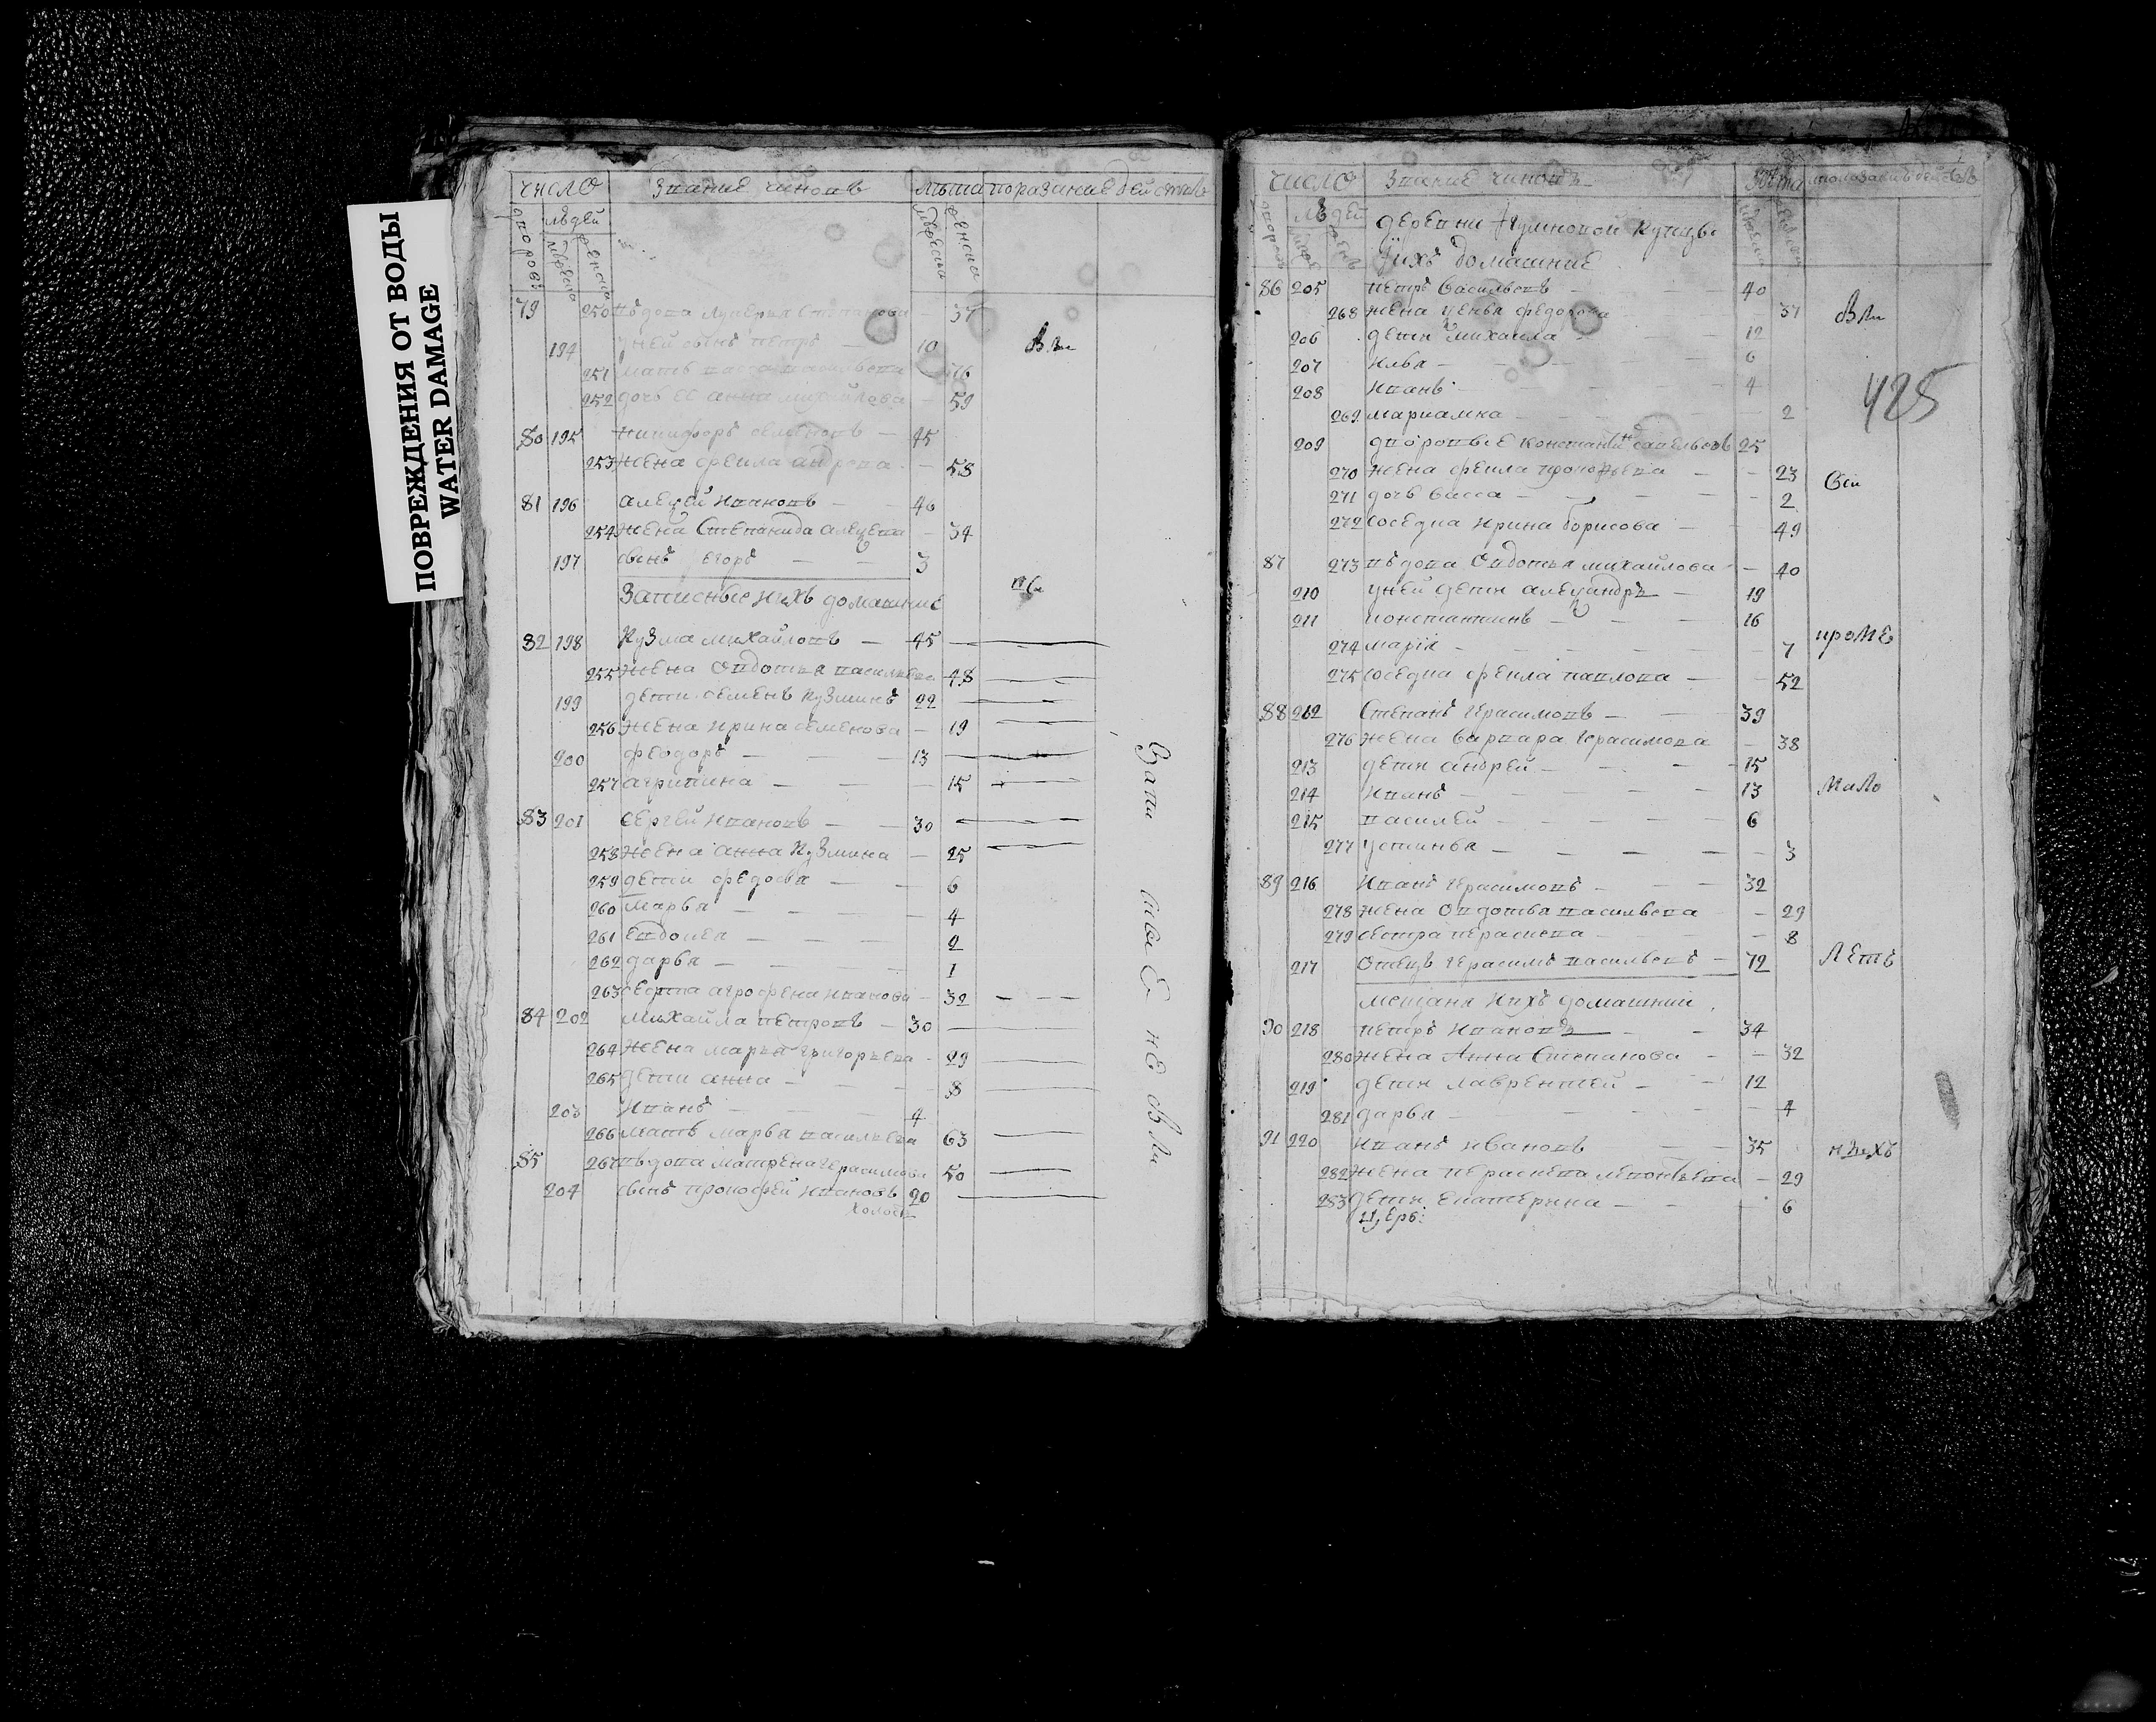 ПОВРЕЖДЕНИЯ ОТ ВОДЫ
WATER DAMAGE
число Звание чиновъ лѣта показание действ
дворовъ людей
79 250 въдова Лукерья Степанова 37
194 у ней сынъ петръ 10
251 мать васса васильева 76
252 дочь ее анна михайлова 59
80 195 никифоръ семеновъ 45
253 жена фекла андрева 58
81 196 алексей Ивановъ 46
254 жена Степанида алексева 34
197 сынъ егоръ 3
Записные ихъ домашние
82 198 Кузма михайловъ 45
255 жена Овдотья васильева 48
199 дети семенъ Кузминъ 22
256 жена ирина семенова 19
200 феодоръ 13
257 агрипина 15
83 201 Сергей Ивановъ 30
258 жена анна Кузмина 25
259 дети федосья 6
260 марья 4
261 Евдокея 2
262 дарья 1
263 сестра агрофена иванова 32
84 202 михайла петровъ 30
264 жена марья григорьева 29
265 дети анна 8
203 Иванъ 4
266 мать марья васильева 63
85 267 въдова матрена герасимова 50
204 сынъ прокофей ивановъ 20
холостъ
число Звание чиновъ
людей
деревни Акулиновой Купцы
и ихъ домашние
425
86 205 петръ Васильевъ 40
268 жена ксенья федорова 37
206 дети михаила 12
207 Илья 6
208 Иванъ 4
269 мариамна 2
209 дворовые Константинъ савельевъ 25
270 жена фекла прокофьева 23
271 дочь васса 2
272 соседка Ирина борисова 49
87 273 въдова Овдотья михайлова 40
210 у ней дети александръ 19
211 константинъ 16
кроме
274 мария 7
275 соседка фекла павлова 52
88 212 Степанъ герасимовъ 39
276 жена варвара герасимова 38
213 дети андрей 15
214 Иванъ 13
мало
215 василей 6
277 устинья 3
89 216 Иванъ герасимовъ 32
278 жена Овдотья васильева 29
279 сестра парасковья 8
217 Отецъ герасимъ васильевъ 72
летъ
мещаня ихъ домашнии
90 218 петръ Ивановъ 34
280 жена Анна Степанова 32
219 дети лаврентей 12
281 дарья 4
91 220 Иванъ ивановъ 35
нихъ
282 жена 29
283 дети Екатерина 6